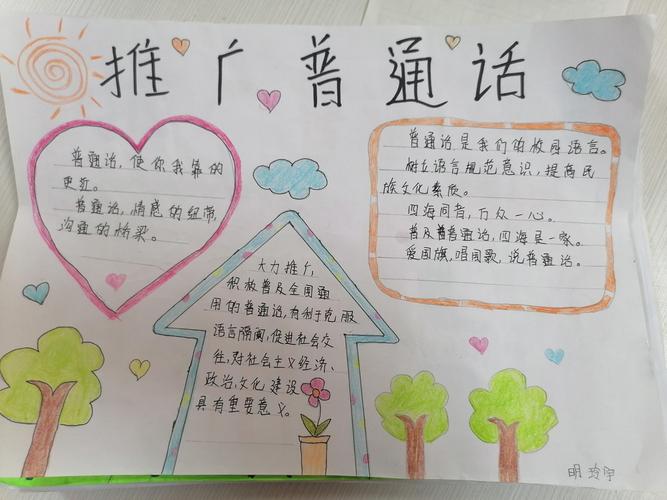 推广普通话
普通话，使你我靠的
更近。
普通话，情感的纽带，
沟通的桥梁。
大力推广，
积极普及全国通
用的普通话，有利于克服
语言隔阂，促进社会交
往，对社会主义经济、
政治，文化建设
具有重要意义。
普通话是我们的校园语言。
树立语言规范意识，提高民
族文化素质。
四海同音，万众一心。
普及普通话，四海是一家。
爱国旗，唱国歌，说普通话。
明玲宇